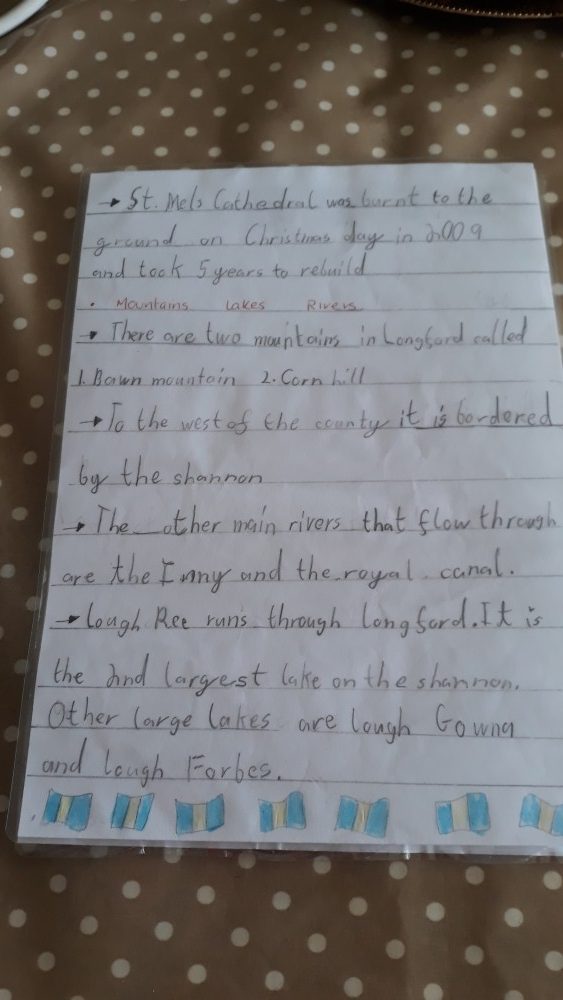 → St. Mels Cathedral was burnt to the
ground on Christmas day in 2009
and took 5 years to rebuild
• Mountains Lakes Rivers
→ There are two mountains in Longford called
1. Bawn mountain 2. Corn hill
→ To the west of the county it is bordered
by the shannon
→ The other main rivers that flow through
are the Inny and the royal canal.
→ Lough Ree runs through longford. It is
the 2nd largest lake on the shannon.
Other large lakes are lough Gowna
and lough Forbes.